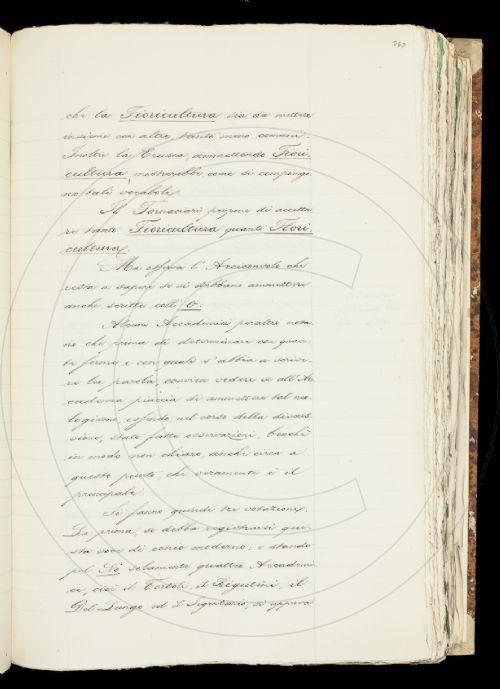 che la Fioricultura sia da mettere
insieme con altre tante meno comuni.
Inoltre la Crusca, ammettendo Fiori-
cultura, mostrerebbe come si compongo-
no tali vocaboli.
Il Fornaciari propone di accetta-
re tanto Fioricultura quanto Flori-
cultura.
Ma osserva l'Arciconsolo che
resta a sapere se si debbano ammettere
anche scritte coll'O.
Alcuni Accademici peraltro nota-
no che prima di determinare con quan-
te forme e con quale s'abbia a scrive-
re la parola, convien vedere se all'Ac-
cademia piaccia di ammettere tal neo-
logismo, essendo, nel corso della discus-
sione, state fatte osservazioni, benchè
in modo non chiaro, anche circa a
questo punto, che veramente è il
principale.
Si fanno quindi tre votazioni.
La prima, se debba registrarsi que-
sta voce di conio moderno; e stando
pel No solamente quattro Accademi-
ci, cioè il Tortoli, il Rigutini, il
Del Lungo ed il Segretario, si approva